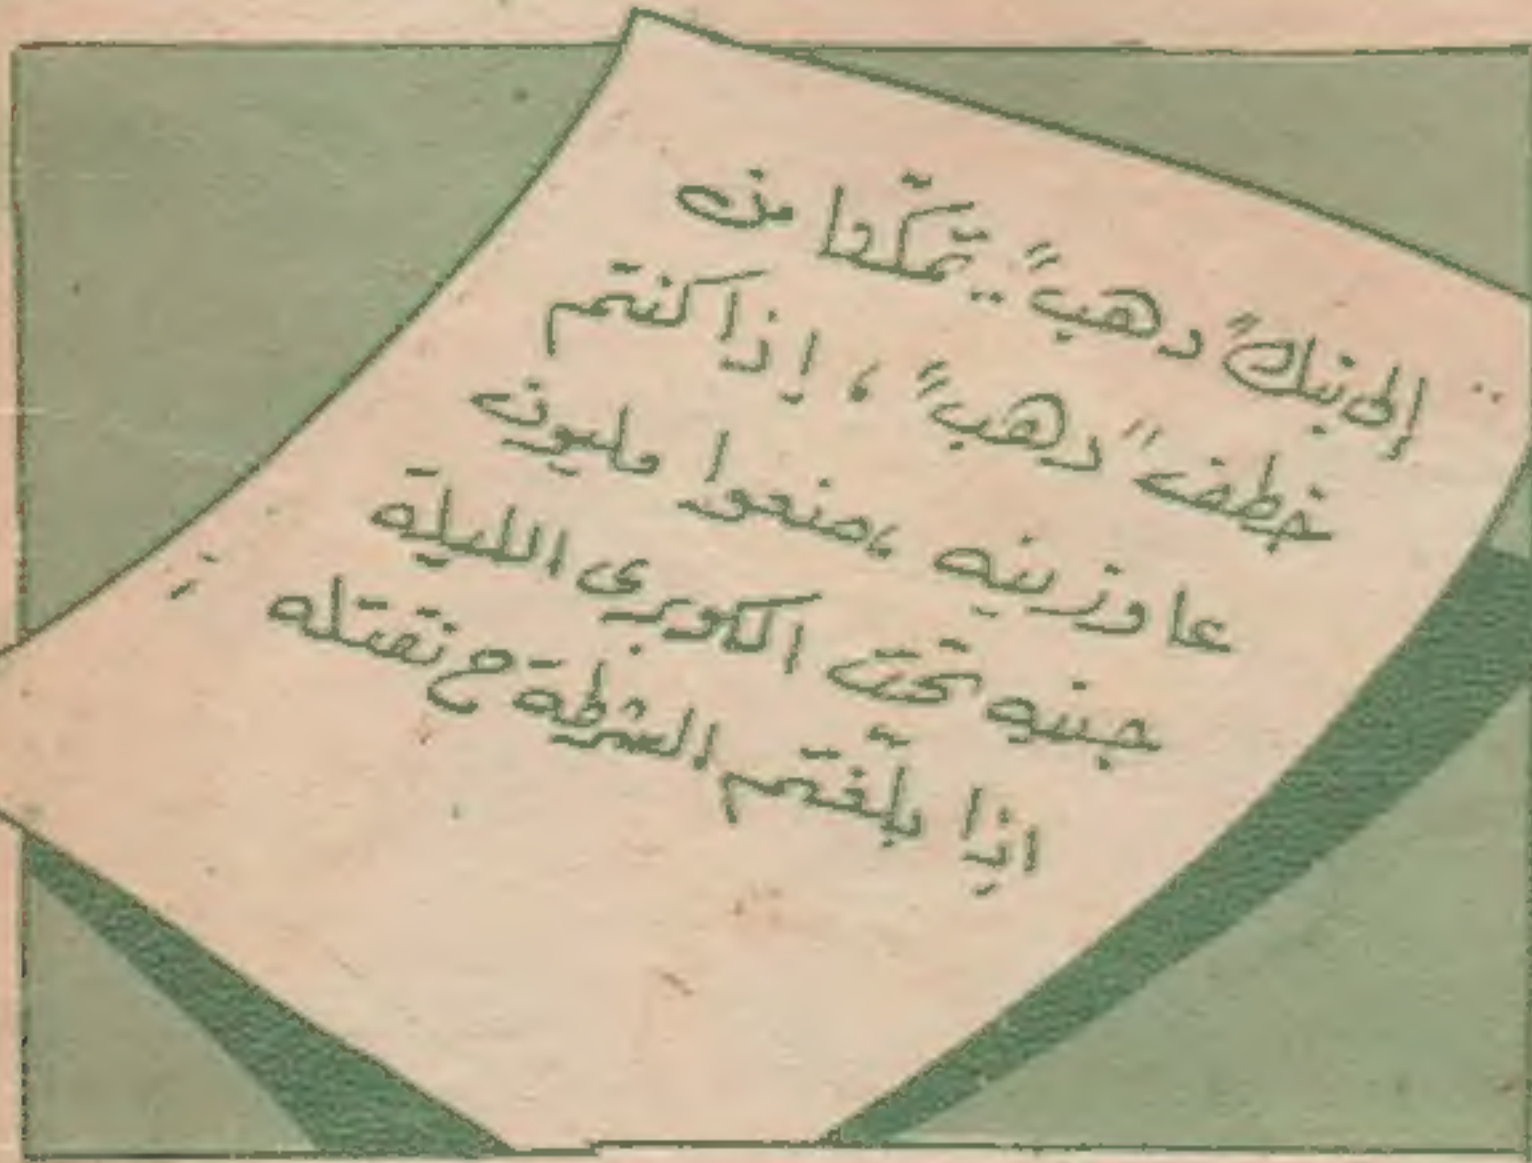 إلى بنك "دهب".. تمكّنوا من
خطف "دهب"، إذا كنتم
عاوزينه، ضعوا مليون
جنيه تحت الكوبرى الليلة
اذا بلّغتم الشرطة ح نقتله